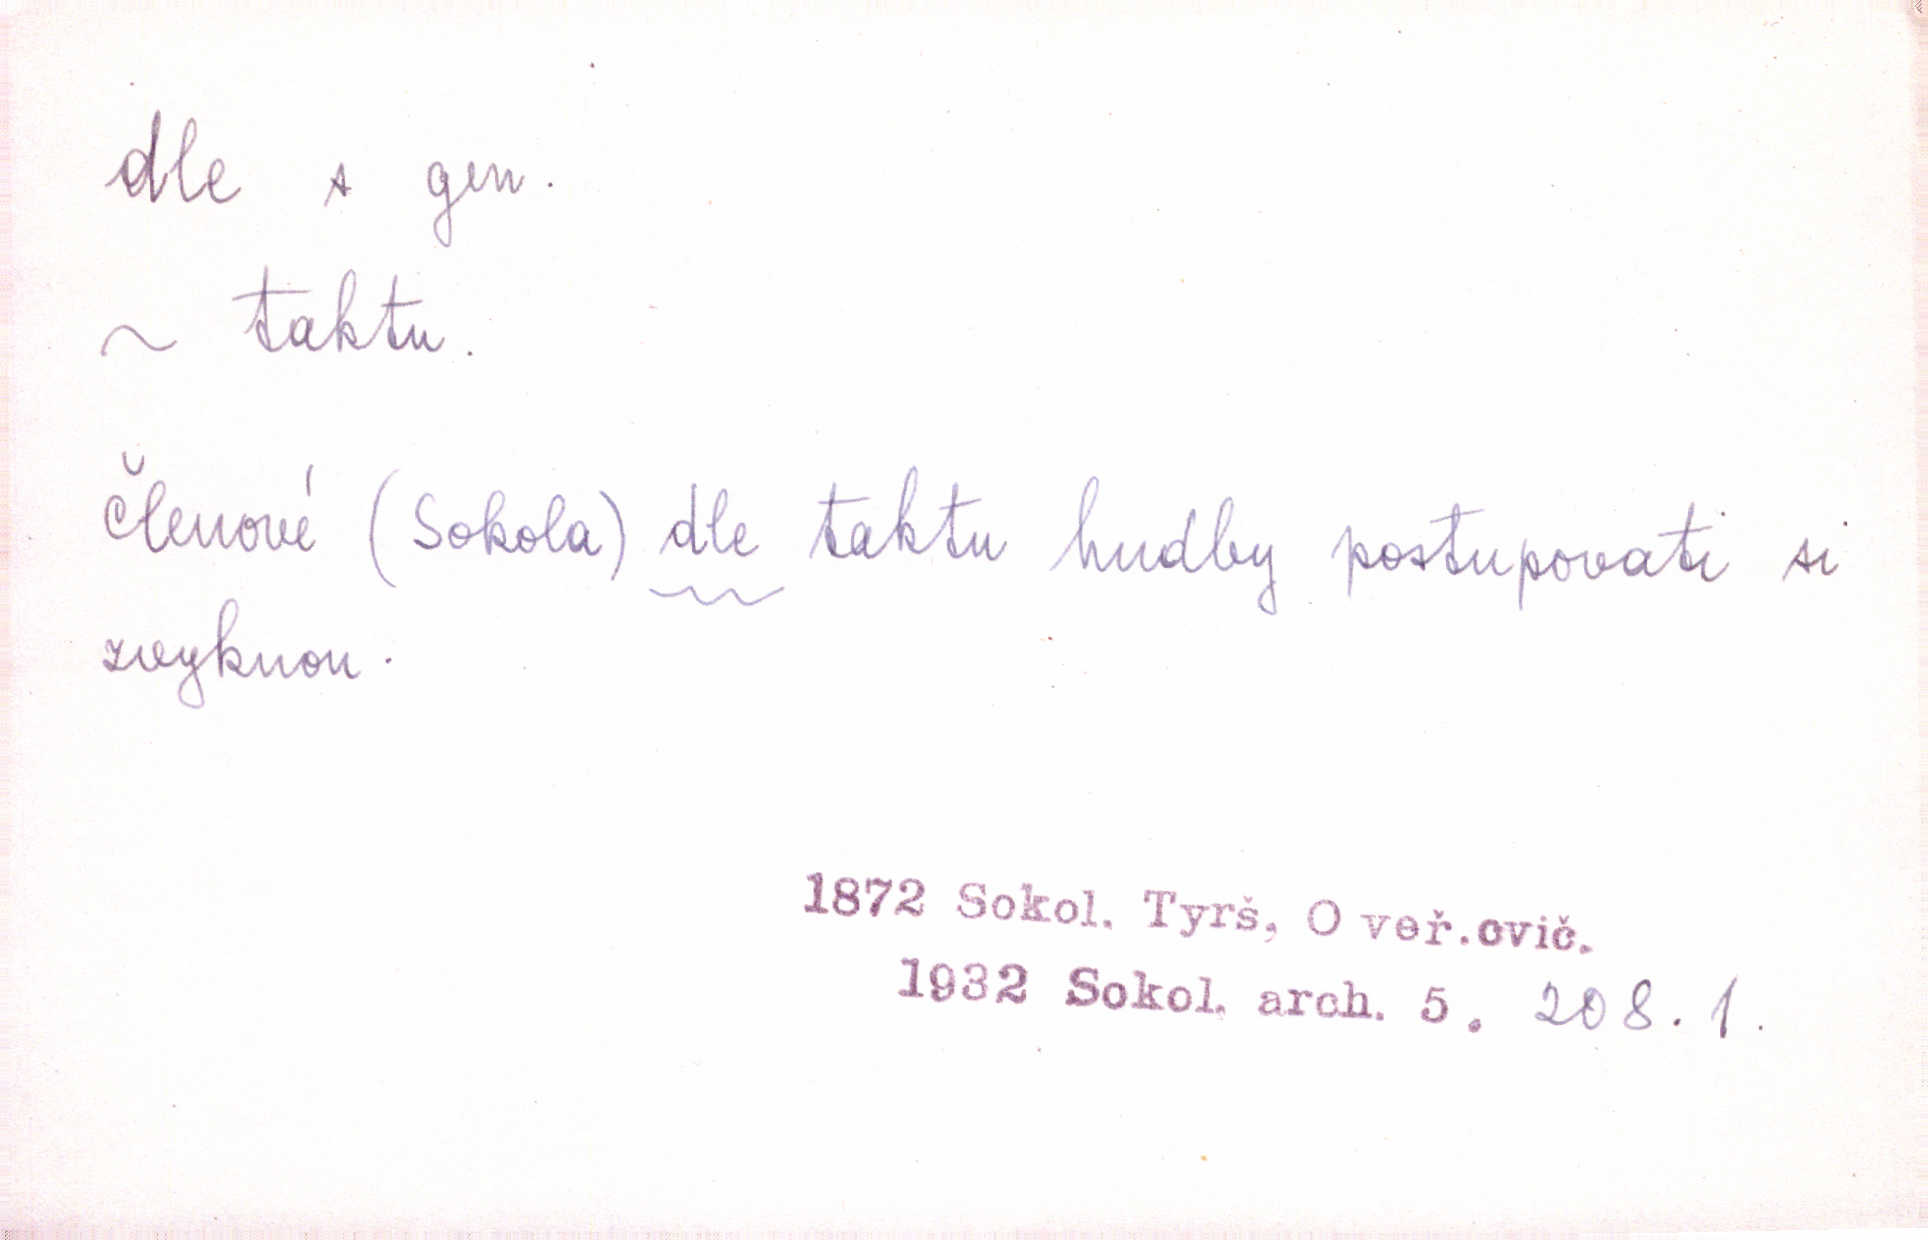 dle s gen.
~ taktu.
členové (Sokola) dle taktu hudby postupovati si
zvyknou.
1872 Sokol. Tyrš, O veř.cvič.
1932 Sokol. arch. 5. 208.1.